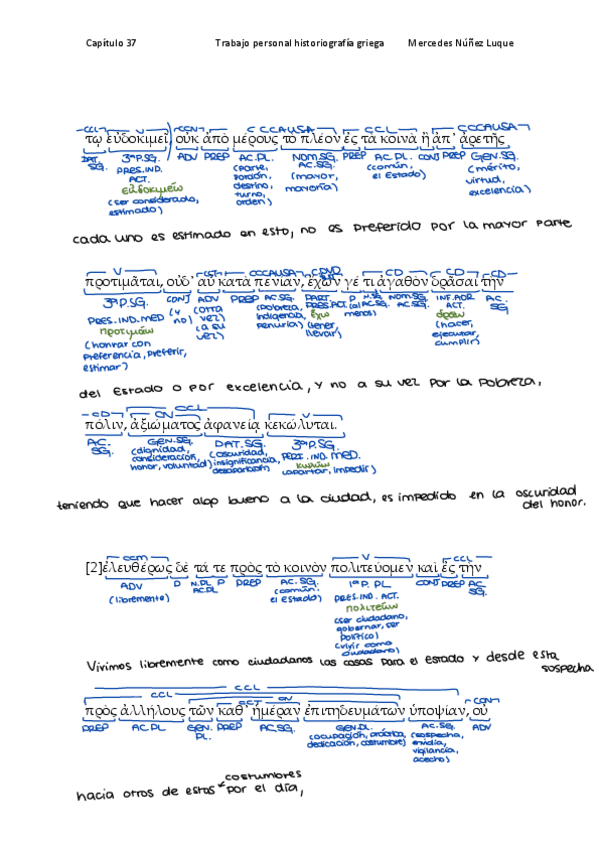 Capítulo 37 Trabajo personal historiografía griega Mercedes Núñez Luque
CCL V CCN CCCAUSA CCL CCCAUSA
τῳ εὐδοκιμεῖ, οὐκ ἀπὸ μέρους τὸ πλέον ἐς τὰ κοινὰ ἢ ἀπ᾽ ἀρετῆς
DAT. SG. 3ªP.SG. PRES.IND. ACT. ADV PREP AC.PL. NOM.SG. AC.SG. PREP AC.PL. CONJ PREP GEN.SG.
εὐδοκιμέω (parte, porción, destino, turno, orden) (mayor, mayoría) (común, el Estado) (mérito, virtud, excelencia)
(ser considerado, estimado)
cada uno es estimado en esto, no es preferido por la mayor parte
V CCT CCCAUSA CD CD CD
προτιμᾶται, οὐδ᾽ αὖ κατὰ πενίαν, ἔχων γέ τι ἀγαθὸν δρᾶσαι τὴν
3ªP.SG. CONJ ADV PREP AC.SG. PART. PRES.ACT. P N.SG. AC.SG. NOM.SG. AC.SG. INF.AOR ACT. AC. SG
PRES.IND.MED (y no) (otra vez) (a su vez) (pobreza, indigencia, penuria) ἔχω (tener, llevar) (al menos) δράω (hacer, ejecutar, cumplir)
προτιμάω
(honrar con preferencia, preferir, estimar)
del Estado o por excelencia, y no a su vez por la pobreza,
CD CCL CN V
πόλιν, ἀξιώματος ἀφανείᾳ κεκώλυται.
AC. SG. GEN.SG. DAT.SG. 3ªP.SG.
(dignidad, consideración, honor, voluntad) (oscuridad, insignificancia, desaparición) PERF.IND.MED.
κωλύω
(apartar, impedir)
teniendo que hacer algo bueno a la ciudad, es impedido en la oscuridad
del honor.
CCM V CCL
[2]ἐλευθέρως δὲ τά τε πρὸς τὸ κοινὸν πολιτεύομεν καὶ ἐς τὴν
ADV P N.PL AC.PL P PREP AC.SG. 1ªP.PL CONJ PREP AC. SG.
(libremente) (común, el Estado) PRES.IND.ACT.
πολιτεύω
(ser ciudadano, gobernar, ser político)
(vivir como ciudadano)
Vivimos libremente como ciudadanos las cosas para el estado y desde esta
sospecha
CCL
CCL CCT CN CCN
πρὸς ἀλλήλους τῶν καθ᾽ ἡμέραν ἐπιτηδευμάτων ὑποψίαν, οὐ
PREP AC.PL GEN. PL. PREP AC.SG. GEN.PL. AC.SG. ADV
(ocupación, práctica, dedicación, costumbre) (sospecha, envidia, vigilancia, acecho)
costumbres
hacia otros de estas por el día,